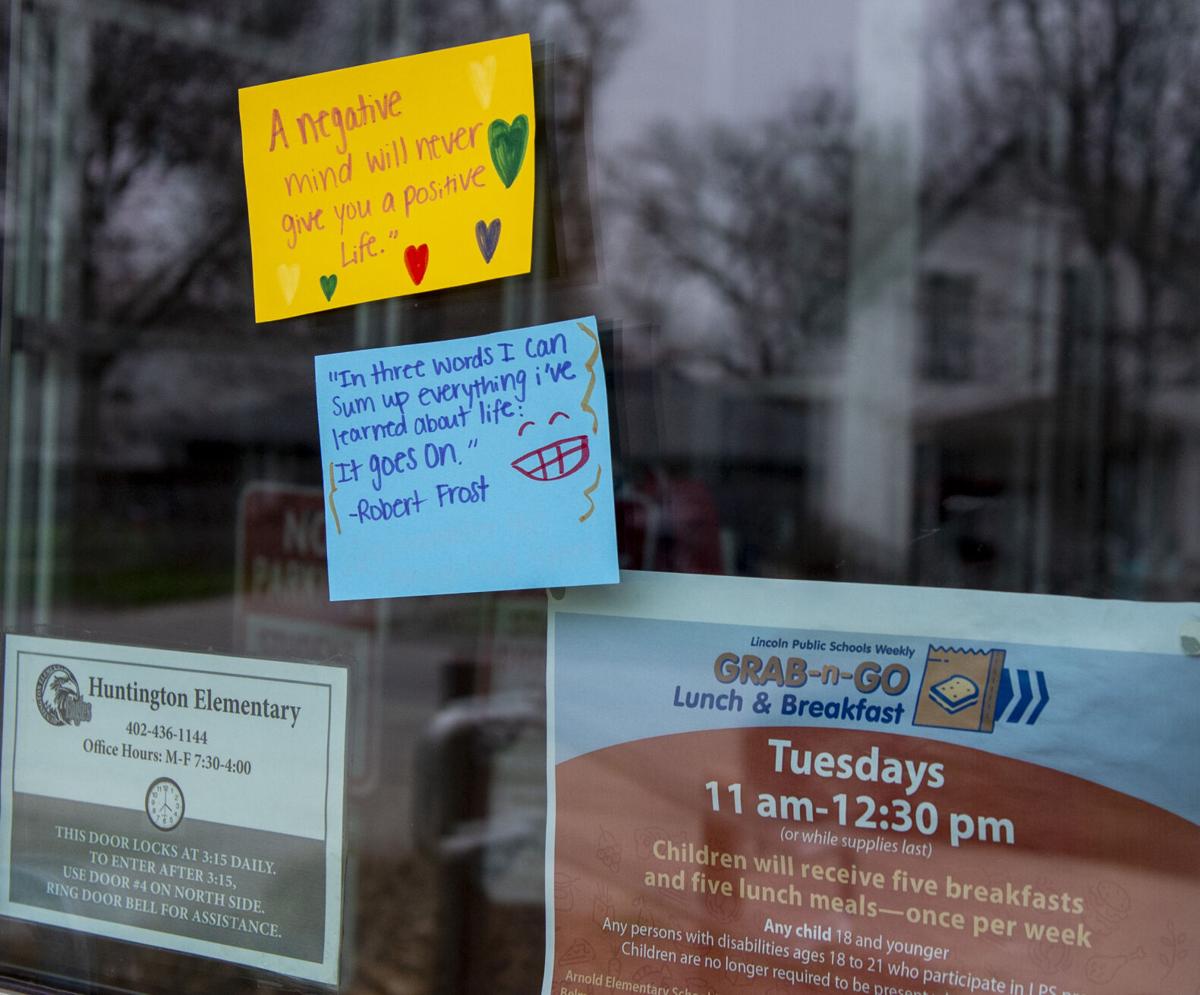 A negative
mind will never
give you a positive
Life."
"In three words I can
sum up everything i've
learned about life:
It goes on."
-Robert Frost
NO
PARK
Huntington Elementary
402-436-1144
Office Hours: M-F 7:30-4:00
THIS DOOR LOCKS AT 3:15 DAILY.
TO ENTER AFTER 3:15,
USE DOOR #4 ON NORTH SIDE.
RING DOOR BELL FOR ASSISTANCE.
Lincoln Public Schools Weekly
GRAB-n-GO
Lunch & Breakfast
Tuesdays
11 am-12:30 pm
(or while supplies last)
Children will receive five breakfasts
and five lunch meals—once per week
Any child 18 and younger
Any persons with disabilities ages 18 to 21 who participate in LPS
Children are no longer required to be present
Arnold Elementary School